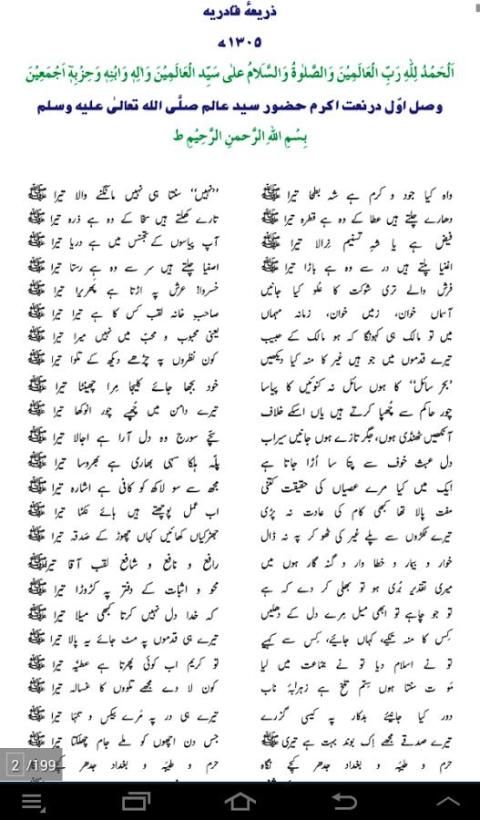 ذریعۂ قادریہ
۱۳۰۵ھ
اَلْحَمْدُ لِلّٰهِ رَبِّ الْعَالَمِيْنَ وَالصَّلٰوةُ وَالسَّلَامُ عَلٰى سَيِّدِ الْعَالَمِيْنَ وَاٰلِهٖ وَابْنِهٖ وَحِزْبِهٖٓ اَجْمَعِيْنَ
وصل اوّل درنعت اکرم حضور سید عالم صلَّی الله تعالیٰ علیه وسلم
بِسْمِ اللهِ الرَّحمنِ الرَّحِيْمِ ط
واہ کیا جود و کرم ہے شہ بطحا تیرا ﷺ ’’نہیں‘‘ سنتا ہی نہیں مانگنے والا تیرا ﷺ
دھارے چلتے ہیں عطا کے وہ ہے قطرہ تیرا ﷺ تارے کھلتے ہیں سخا کے وہ ہے ذرہ تیرا ﷺ
فیض ہے یا شہِ تسنیم نرالا تیرا ﷺ آپ پیاسوں کے تجسّس میں ہے دریا تیرا ﷺ
اغنیا پلتے ہیں در سے وہ ہے باڑا تیرا ﷺ اصفیا چلتے ہیں سر سے وہ ہے رستا تیرا ﷺ
فرش والے تری شوکت کا عُلو کیا جانیں خسروا! عرش پہ اڑتا ہے پھریرا تیرا ﷺ
آسماں خوان، زمیں خوان، زمانہ مہماں صاحبِ خانہ لقب کس کا ہے تیرا تیرا ﷺ
میں تو مالک ہی کہونگا کہ ہو مالک کے حبیب یعنی محبوب و محبّ میں نہیں میرا تیرا ﷺ
تیرے قدموں میں جو ہیں غیر کا منہ کیا دیکھیں کون نظروں پہ چڑھے دیکھ کے تلوا تیرا ﷺ
’’بحر سائل‘‘ کا ہوں سائل نہ کنوئیں کا پیاسا خود بجھا جائے کلیجا مِرا چھینٹا تیرا ﷺ
چور حاکم سے چُھپا کرتے ہیں یاں اسکے خلاف تیرے دامن میں چُھپے چور انوکھا تیرا ﷺ
آنکھیں ٹھنڈی ہوں، جگر تازے ہوں جانیں سیراب سچّے سورج وہ دل آرا ہے اجالا تیرا ﷺ
دل عبث خوف سے پتا سا اُڑا جاتا ہے پلّہ ہلکا سہی بھاری ہے بھروسا تیرا ﷺ
ایک میں کیا مرے عصیاں کی حقیقت کتنی مجھ سے سو لاکھ کو کافی ہے اشارہ تیرا ﷺ
مفت پالا تھا کبھی کام کی عادت نہ پڑی اب عمل پوچھتے ہیں ہائے نکما تیرا ﷺ
تیرے ٹکڑوں سے پلے غیر کی ٹھوکر پہ نہ ڈال جھڑکیاں کھائیں کہاں چھوڑ کے صدقہ تیرا ﷺ
خوار و بیمار و خطا وار و گنہ گار ہوں میں رافع و نافع و شافع لقب آقا تیرا ﷺ
میری تقدیر بُری ہو تو بھلی کر دے کہ ہے محو و اثبات کے دفتر پہ کڑوڑا تیرا ﷺ
تو جو چاہے تو ابھی میل مرے دل کے دھلیں کہ خدا دل نہیں کرتا کبھی میلا تیرا ﷺ
کِس کا منہ تکیے، کہاں جائیے، کس سے کہیے تیرے ہی قدموں پہ مٹ جائے یہ پالا تیرا ﷺ
تو نے اسلام دیا تو نے جماعت میں لیا تو کریم اب کوئی پھرتا ہے عطیّہ تیرا ﷺ
موت سنتا ہوں ستم تلخ ہے زہرابۂ ناب کون لا دے مجھے تلووں کا غسالہ تیرا ﷺ
دور کیا جانیئے بدکار پہ کیسی گزرے تیرے ہی در پہ مُرے بیکس و تنہا تیرا ﷺ
تیرے صدقے مجھے اِک بوند بہت ہے تیری ﷺ جس دن اچھوں کو ملے جام چھلکتا تیرا ﷺ
حرم و طیبہ و بغداد جدھر کیجے نگاہ
2 / 199